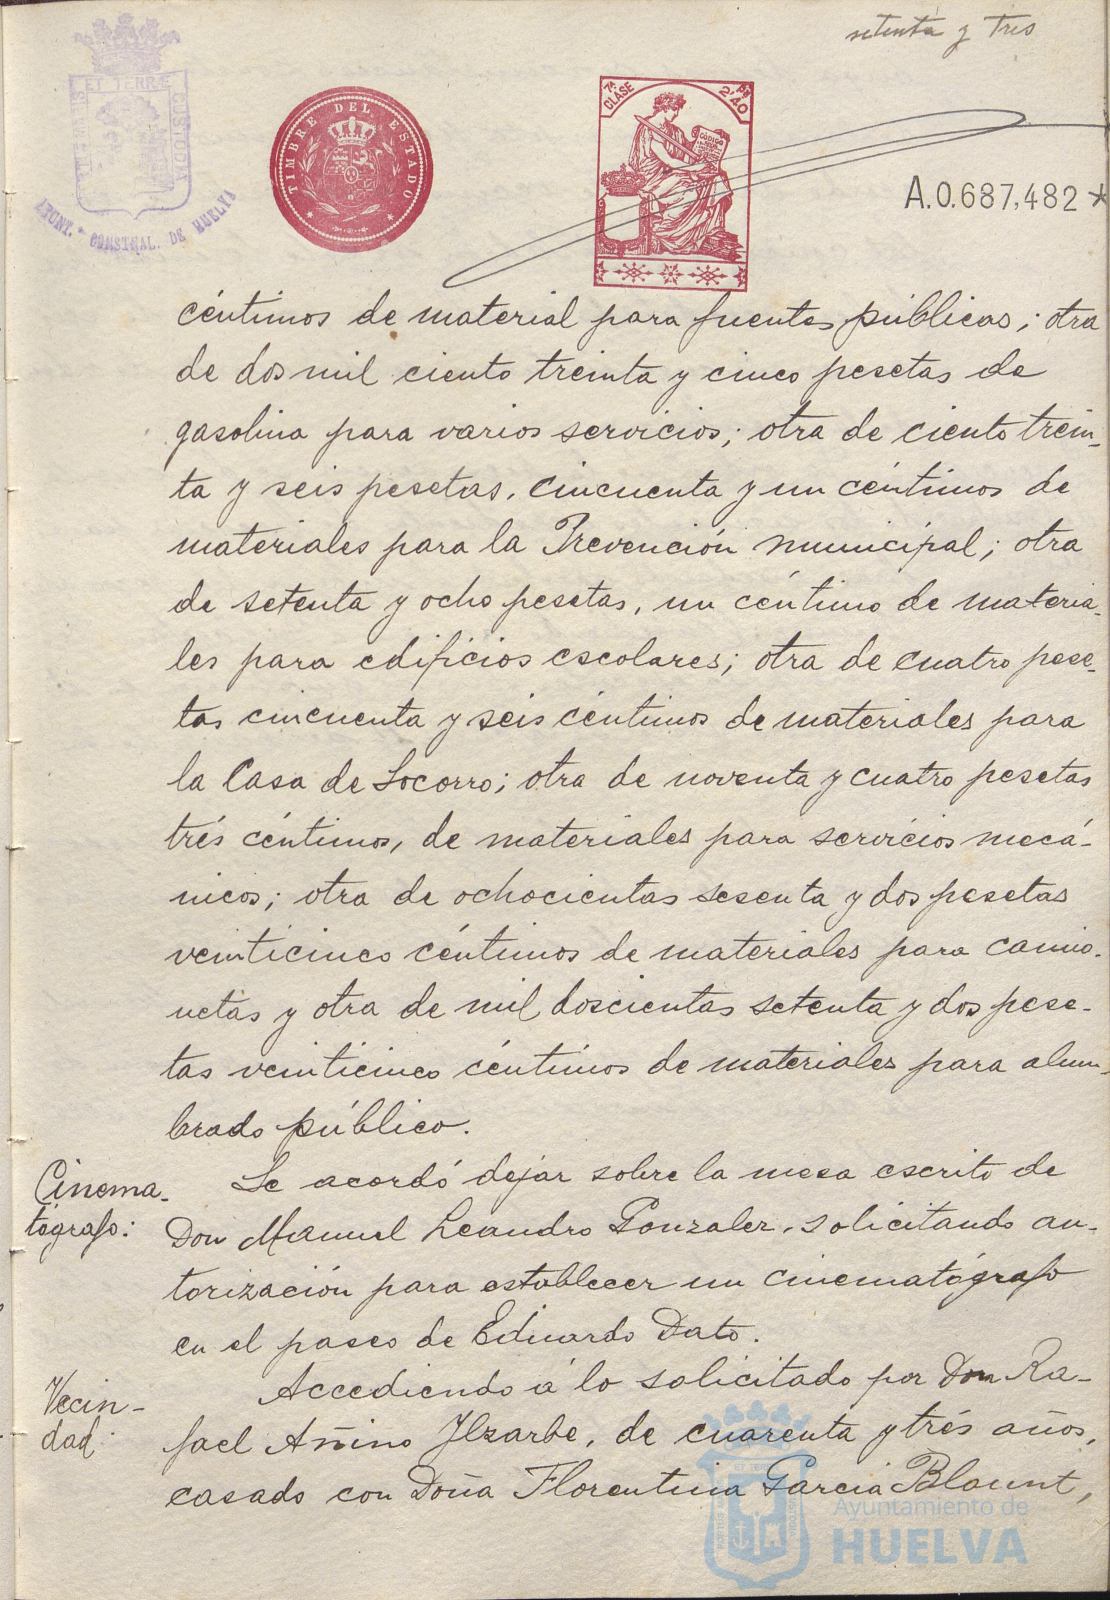 setenta y tres
PORTUS MARIS ET TERRÆ CUSTODIA
AYUNT. * COMSTNAL. DE HUELVA
TIMBRE DEL ESTADO
7ª CLASE
Pts 2'40
CÓDIGO
A.0.687,482 *
céntimos de material para fuentes públicas; otra
de dos mil ciento treinta y cinco pesetas de
gasolina para varios servicios; otra de ciento trein-
ta y seis pesetas, cincuenta y un céntimos de
materiales para la Prevención municipal; otra
de setenta y ocho pesetas, un céntimo de materia-
les para edificios escolares; otra de cuatro pese-
tas cincuenta y seis céntimos de materiales para
la Casa de Socorro; otra de noventa y cuatro pesetas
trés céntimos, de materiales para servicios mecá-
nicos; otra de ochocientas sesenta y dos pesetas
veinticinco céntimos de materiales para camio-
netas y otra de mil doscientas setenta y dos pese-
tas veinticinco céntimos de materiales para alum-
brado público.
Cinema-
tógrafo:
Se acordó dejar sobre la mesa escrito de
Don Manuel Leandro Gonzalez, solicitando au-
torización para establecer un cinematógrafo
en el paseo de Eduardo Dato.
Vecin-
dad:
Accediendo á lo solicitado por Don Ra-
fael Añino Ylzarbe, de cuarenta y trés años,
casado con Doña Florentina Garcia Blount,
Ayuntamiento de
HUELVA